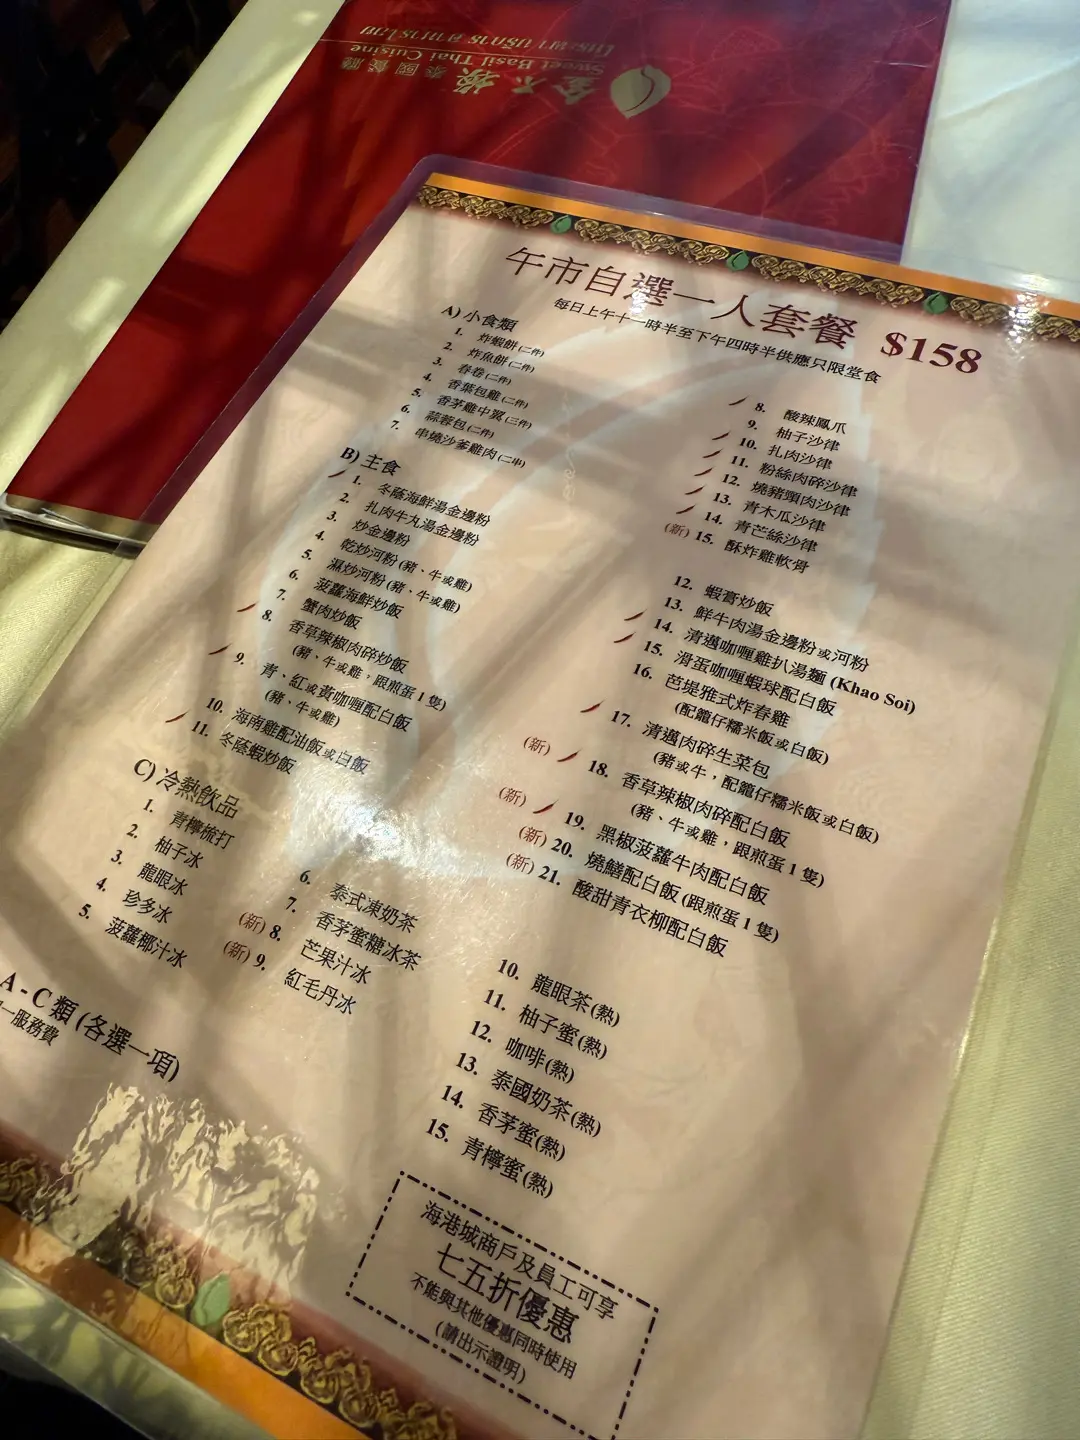 金不換
泰國餐廳
Sweet Basil Thai Cuisine
午市自選一人套餐 $158
每日上午十一時半至下午四時半供應只限堂食
A) 小食類
1. 炸蝦餅 (二件)
2. 炸魚餅 (二件)
3. 春卷 (二件)
4. 香葉包雞 (二件)
5. 香茅雞中翼 (三件)
6. 蒜蓉包 (二件)
7. 串燒沙爹雞肉 (二串)
8. 酸辣鳳爪
9. 柚子沙律
10. 扎肉沙律
11. 粉絲肉碎沙律
12. 燒豬頸肉沙律
13. 青木瓜沙律
14. 青芒絲沙律
(新) 15. 酥炸雞軟骨
B) 主食
1. 冬蔭海鮮湯金邊粉
2. 扎肉牛丸湯金邊粉
3. 炒金邊粉
4. 乾炒河粉 (豬、牛或雞)
5. 濕炒河粉 (豬、牛或雞)
6. 菠蘿海鮮炒飯
7. 蟹肉炒飯
8. 香草辣椒肉碎炒飯
(豬、牛或雞，跟煎蛋 1 隻)
9. 青、紅或黃咖喱配白飯
(豬、牛或雞)
10. 海南雞配油飯或白飯
11. 冬蔭蝦炒飯
12. 蝦膏炒飯
13. 鮮牛肉湯金邊粉或河粉
14. 清邁咖喱雞扒湯麵 (Khao Soi)
15. 滑蛋咖喱蝦球配白飯
16. 芭堤雅式炸春雞
(配籠仔糯米飯或白飯)
17. 清邁肉碎生菜包
(豬或牛，配籠仔糯米飯或白飯)
(新) 18. 香草辣椒肉碎配白飯
(豬、牛或雞，跟煎蛋 1 隻)
(新) 19. 黑椒菠蘿牛肉配白飯
(新) 20. 燒鱔配白飯 (跟煎蛋 1 隻)
(新) 21. 酸甜青衣柳配白飯
C) 冷熱飲品
1. 青檸梳打
2. 柚子冰
3. 龍眼冰
4. 珍多冰
5. 菠蘿椰汁冰
6. 泰式凍奶茶
7. 香茅蜜糖冰茶
(新) 8. 芒果汁冰
(新) 9. 紅毛丹冰
10. 龍眼茶 (熱)
11. 柚子蜜 (熱)
12. 咖啡 (熱)
13. 泰國奶茶 (熱)
14. 香茅蜜 (熱)
15. 青檸蜜 (熱)
A - C 類 (各選一項)
一服務費
海港城商戶及員工可享
七五折優惠
不能與其他優惠同時使用
(請出示證明)